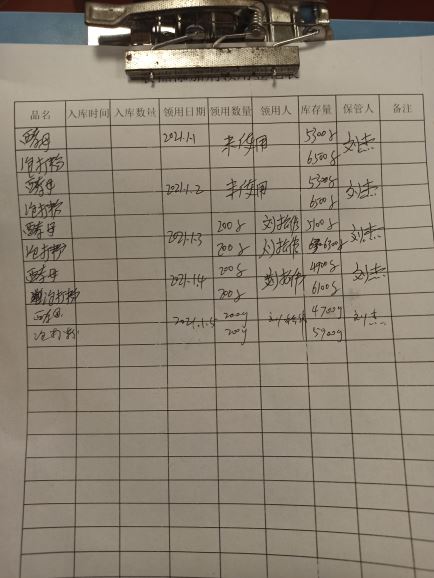 品名 入库时间 入库数量 领用日期 领用数量 领用人 库存量 保管人 备注
酵母 2021.1.1 未使用 5300g 刘杰
泡打粉 6500g
酵母 2021.1.2 未使用 5300g 刘杰
泡打粉 6500g
酵母 2021.1.3 200g 5100g 刘杰
泡打粉 200g 6300g
酵母 2021.1.4 200g 4900g 刘杰
泡打粉 200g 6100g
酵母 2021.1.5 200g 4700g 刘杰
泡打粉 200g 5900g